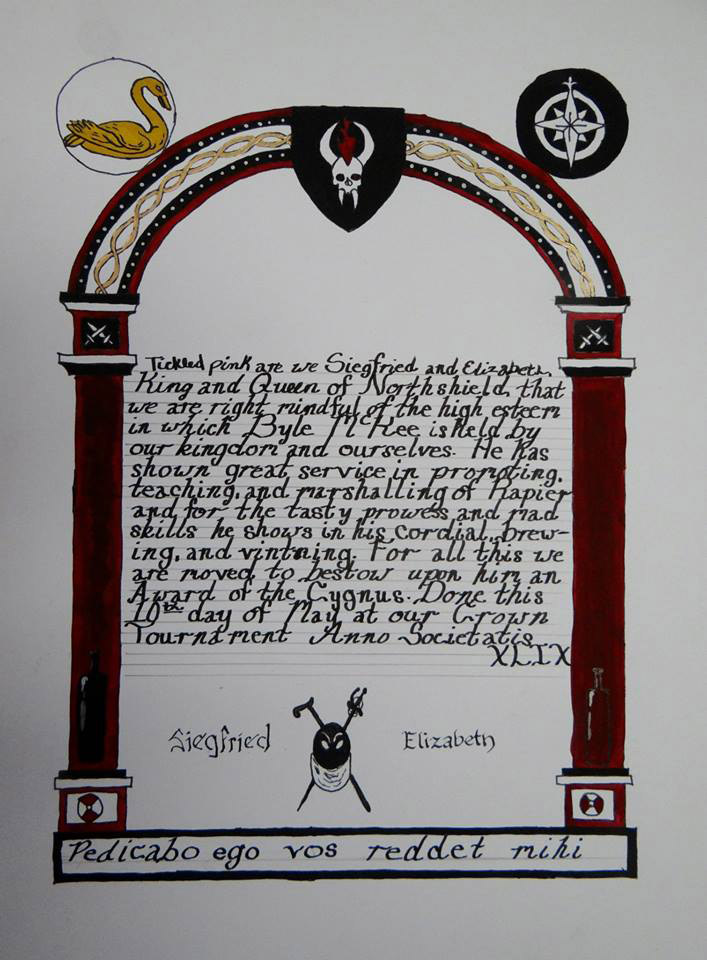 Tickled pink are we Siegfried and Elizabeth,
King and Queen of Northshield, that
we are right mindful of the high esteem
in which Byle McKee is held by
our kingdom and ourselves. He has
shown great service in promoting,
teaching, and marshalling of Rapier
and for the tasty prowess and mad
skills he shows in his cordial, brew-
ing, and vintning. For all this we
are moved to bestow upon him an
Award of the Cygnus. Done this
10th day of May at our Crown
Tournament Anno Societatis
XLIX
Siegfried Elizabeth
Pedicabo ego vos reddet mihi